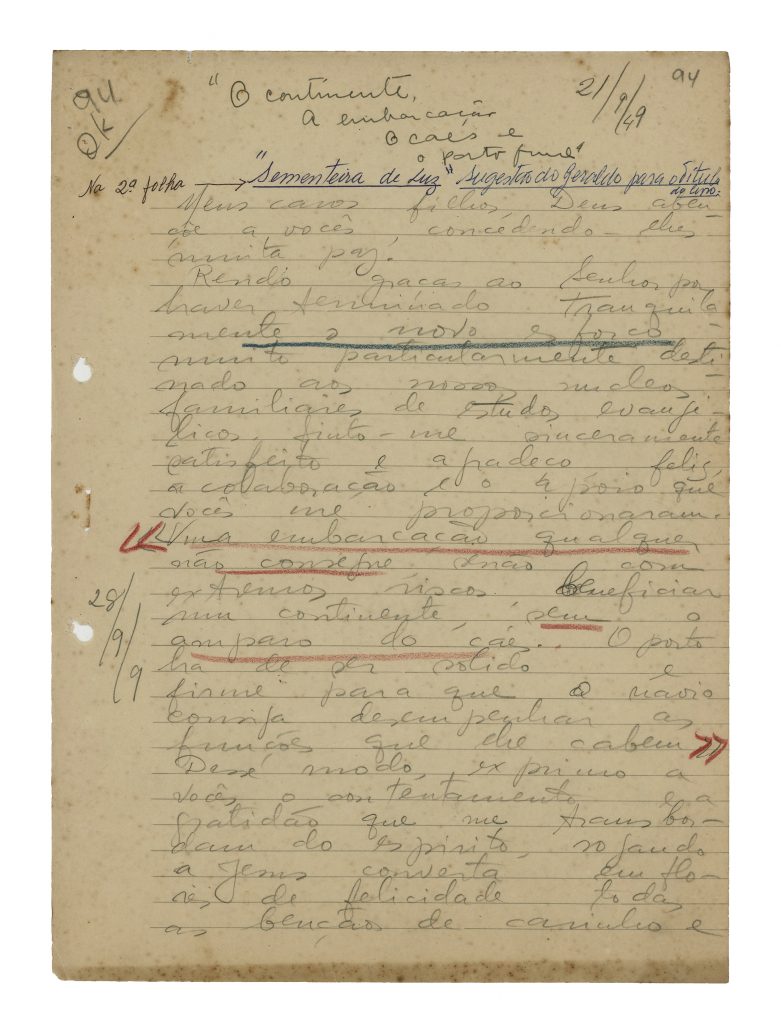 94
OK
"O continente,
A embarcação
O caés e
o porto firme"
21/9/49
94
Na 2ª folha → "Sementeira de Luz" Sugestão do Geraldo para o titulo
do livro.
Meus caros filhos, Deus aben-
çõe a vocês, concedendo-lhes
muita paz.
Rendo graças ao Senhor por
haver terminado tranquila-
mente o novo esforço
muito particularmente desti-
nado aos nossos nucleos
familiares de estudos evangé-
licos. Sinto-me sinceramente
satisfeito e agradeço feliz,
a colaboração e o apóio que
vocês me proporcionaram.
«Uma embarcação qualquer
não consegue senão com
extremos riscos beneficiar
um continente, sem o
amparo do cáes. O porto
ha de ser solido e
firme para que o návio
consiga desempenhar as
funções que lhe cabem»
28/9/9
Desse modo, exprimo a
vocês o contentamento e a
gratidão que me transbor-
dam do espirito, rogando
a Jesus converta em flo-
res de felicidade todas
as bençãos de carinho e